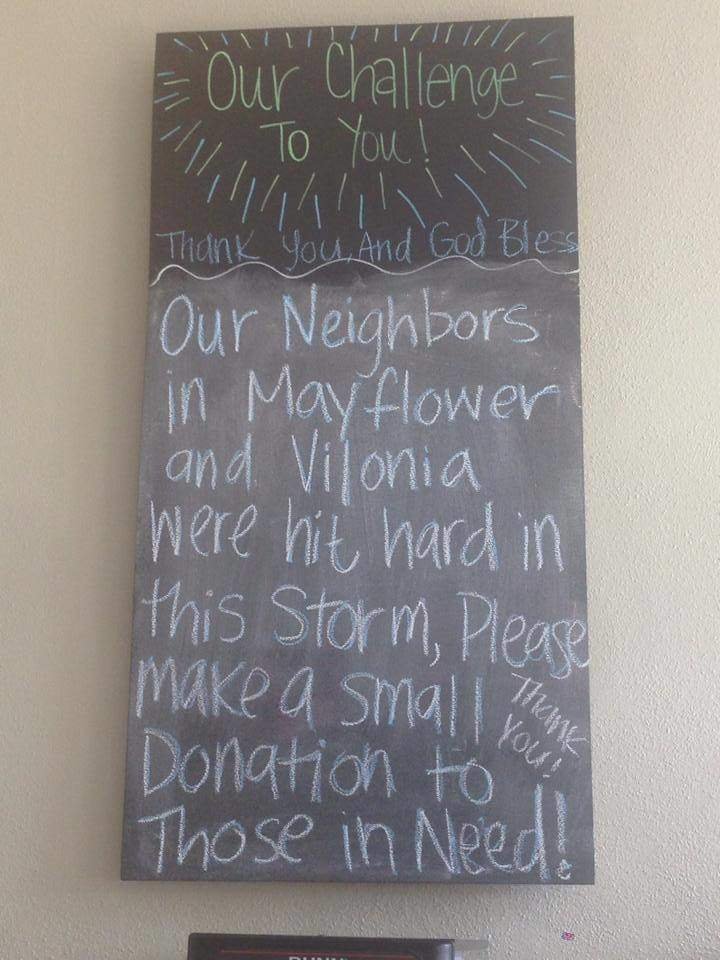 Our Challenge
To You!
Thank You, And God Bless
Our Neighbors
in Mayflower
and Vilonia
were hit hard in
this Storm, Please
make a small
Thank
You!
Donation to
Those in Need!